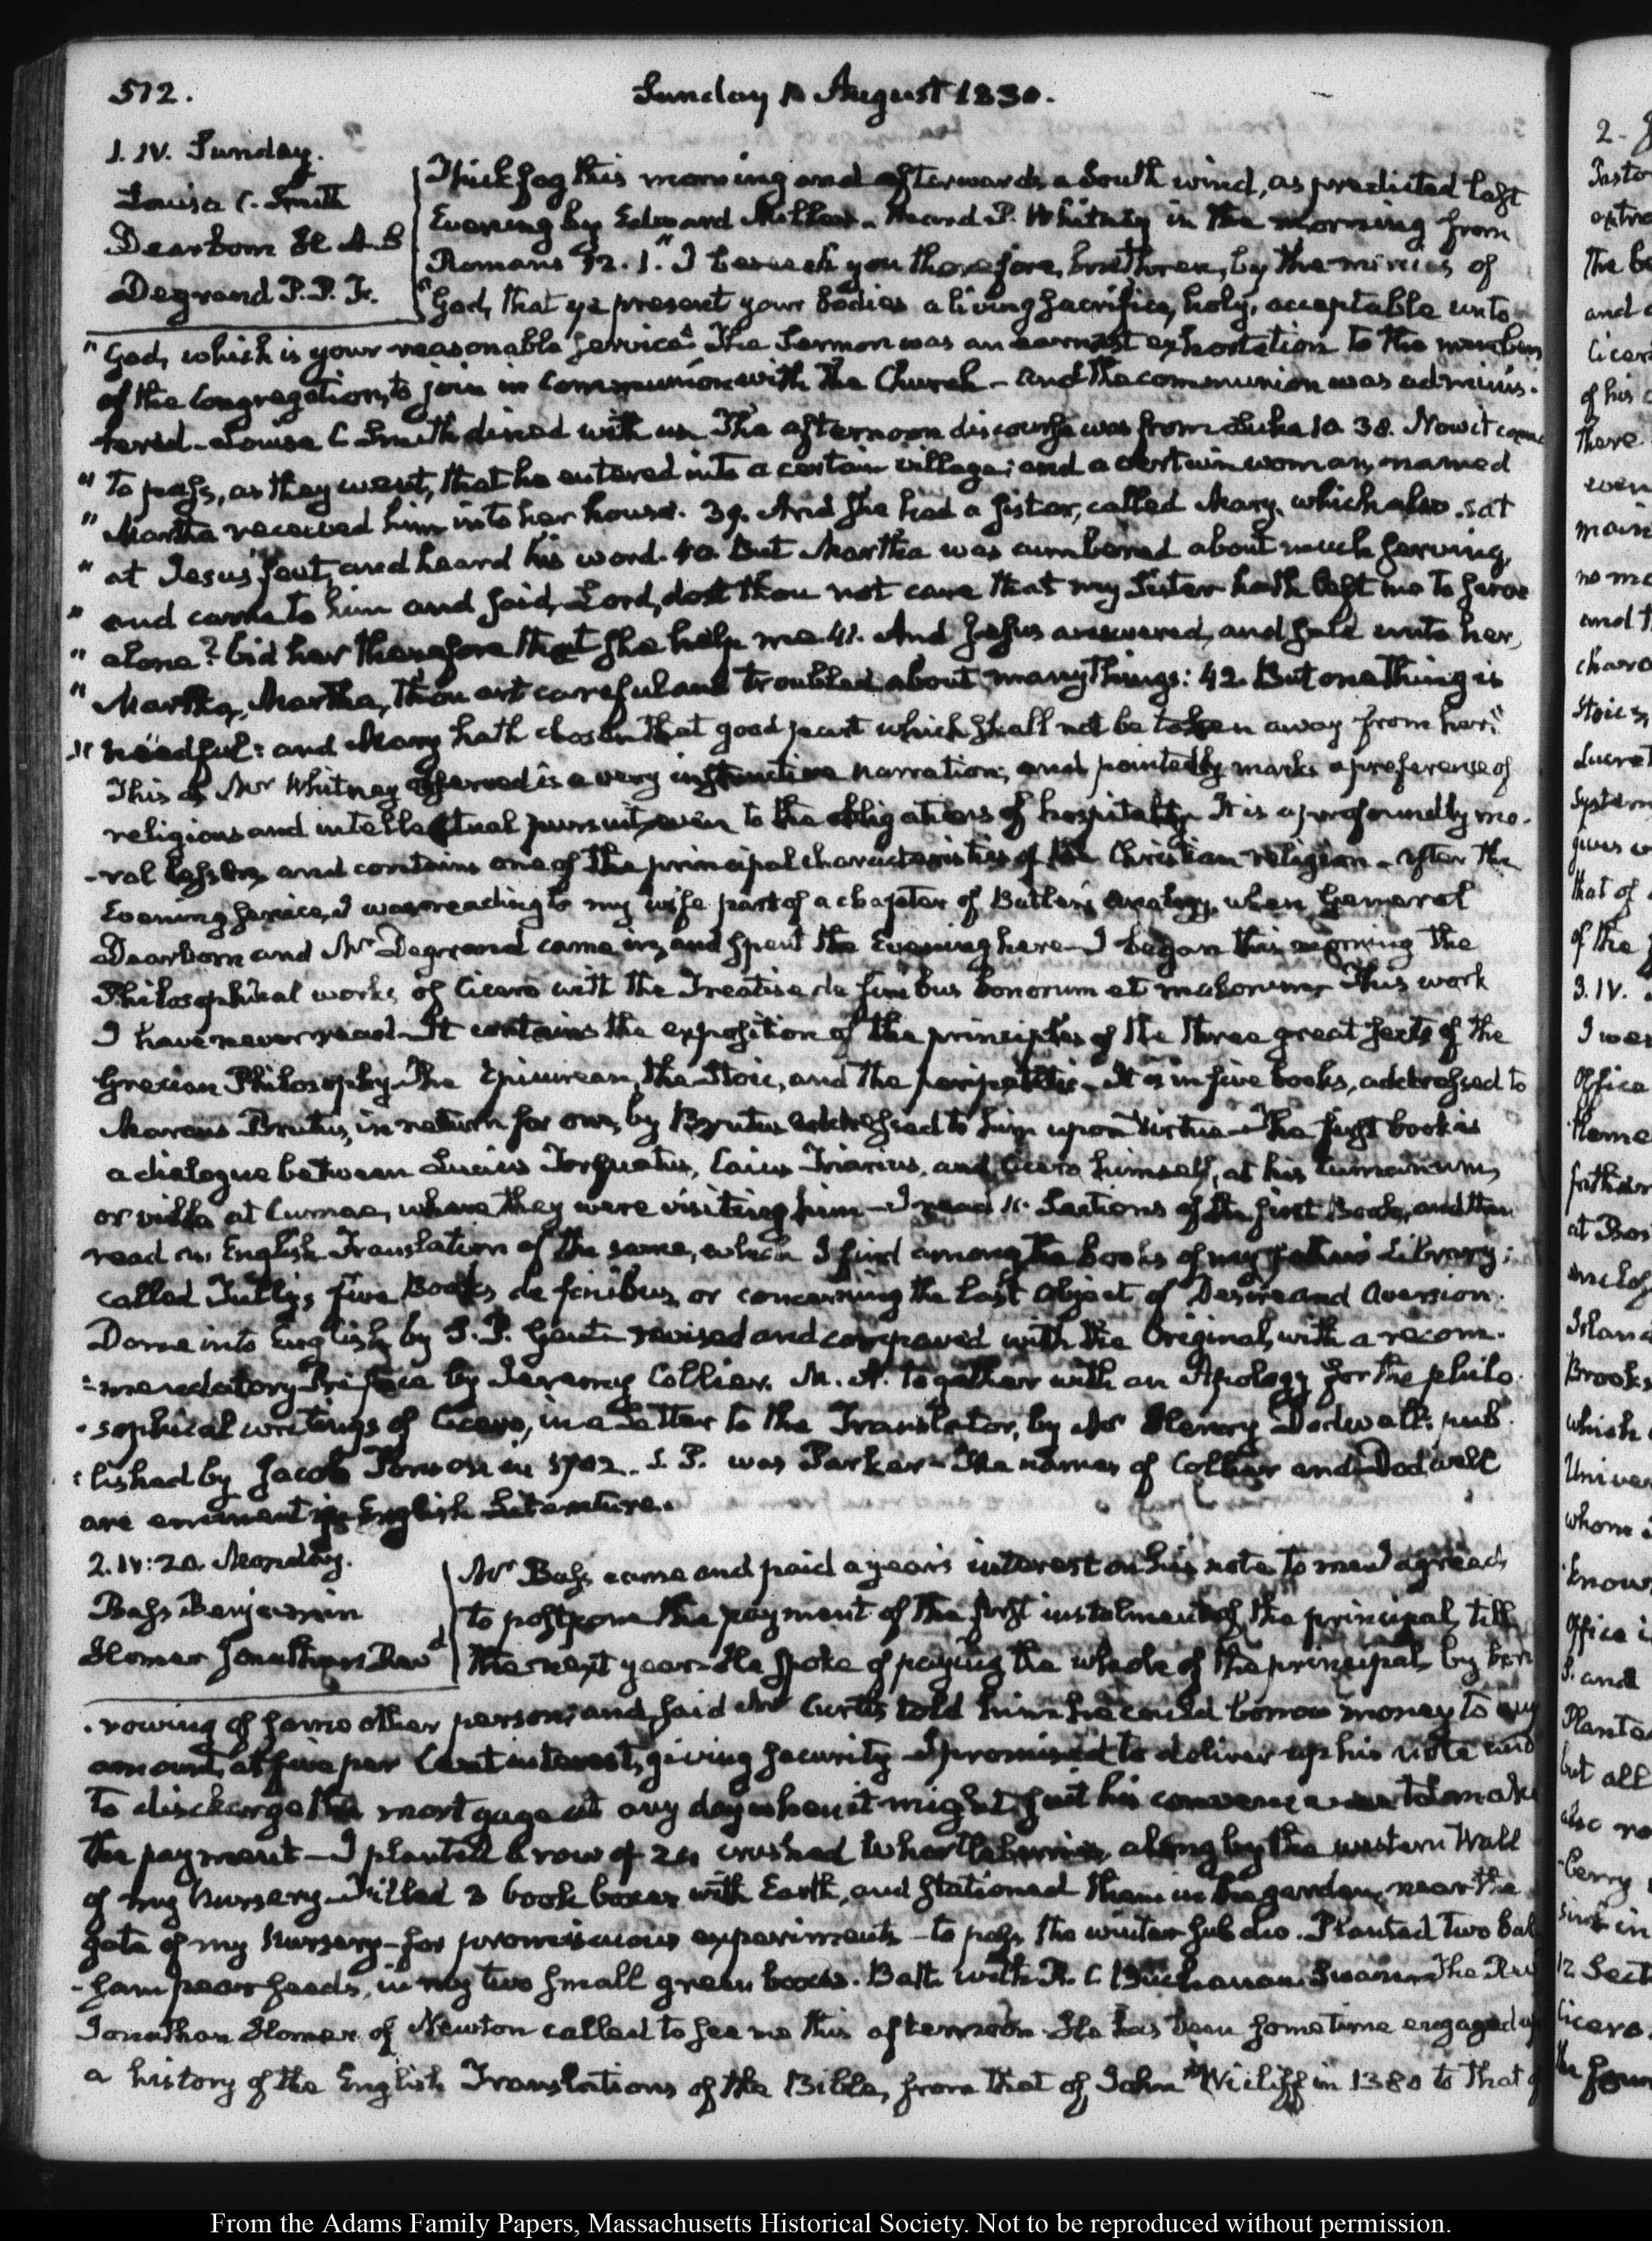 512.
Sunday 1. August 1830.
1. IV. Sunday.
Louisa C. Smith
Dearborn H. A. S
Degrand P. P. F.
Thick fog this morning and afterwards a South wind, as predicted last
Evening by Edward Miller. Heard P. Whitney in the morning from
Romans 12. 1. "I beseech you therefore, brethren, by the mercies of
"God, that ye present your bodies a living sacrifice, holy, acceptable unto
"God, which is your reasonable service" The Sermon was an earnest exhortation to the members
of the Congregation, to join in Communion with the Church - and the communion was adminis-
tered - Louisa C Smith dined with us. The afternoon discourse was from Luke 10. 38. Now it came
"to pass, as they went, that he entered into a certain village; and a certain woman, named
"Martha received him into her house. 39. And she had a sister, called Mary, which also sat
"at Jesus' feet, and heard his word. 40. But Martha was cumbered about much serving,
"and came to him and said, Lord, dost thou not care that my Sister hath left me to serve
"alone? bid her therefore that she help me. 41. And Jesus answered, and said unto her,
"Martha, Martha, thou art careful and troubled about many things: 42. But one thing is
"needful: and Mary hath chosen that good part which shall not be taken away from her."
This as Mr Whitney observed is a very instructive narration; and pointedly marks a preference of
religious and intellectual pursuit, even to the obligations of hospitality. It is a profoundly mo-
-ral lesson, and contains one of the principal characteristics of the Christian religion - After the
Evening service, I was reading to my wife part of a chapter of Butler's Analogy, when General
Dearborn and Mr Degrand came in, and spent the Evening here - I began this morning the
Philosophical works of Cicero with the Treatise de finibus bonorum et malorum. This work
I have never read - It contains the exposition of the principles of the three great sects of the
Grecian Philosophy - The Epicurean, the Stoic, and the peripatetic - It is in five books, addressed to
Marcus Brutus, in return for one, by Brutus addressed to him upon Virtue - The first book is
a dialogue between Lucius Torquatus, Caius Triarius, and Cicero himself, at his Cumanum,
or villa at Cumae, where they were visiting him - I read Sections of the first Book, and then
read an English Translation of the same, which I find among the books of my father's Library;
called Tully's five Books de finibus, or concerning the last Object of Desire and Aversion.
Done into English by S. P. Gent. revised and compared with the Original, with a recom-
-mendatory Preface by Jeremy Collier. M. A. together with an Apology for the philo-
-sophical writings of Cicero, in a Letter to the Translator, by Mr Henry Dodwell: pub-
-lished by Jacob Tonson in 1702. S. P. was Parker - The names of Collier and Dodwell
are eminent in English Literature.
2. IV: 20. Monday.
Bass Benjamin
Homer Jonathan Revd
Mr Bass came and paid a year's interest on his note to me. I agreed
to postpone the payment of the first instalment of the principal, till
the next year - He spoke of paying the whole of the principal, by bor-
-rowing of some other person; and said Mr Curtis told him he could borrow money to any
amount, at five per Cent interest, giving security - I promised to deliver up his note and
to discharge the mortgage at any day when it might suit his convenience to make
the payment - I planted a row of 24 crushed whortleberries along by the western Wall
of my Nursery - Filled 3 book boxes with Earth, and stationed them in the garden, near the
gate of my Nursery - for promiscuous experiments - to pass the winter sub dio. Planted two bal-
-sam pear seeds, in my two small green boxes. Bath with T. C. Buchanan. Swam. The Rev
Jonathan Homer of Newton called to see me this afternoon. He has been sometime engaged
a history of the English Translations of the Bible, from that of John Wicliff in 1380 to that
From the Adams Family Papers, Massachusetts Historical Society. Not to be reproduced without permission.